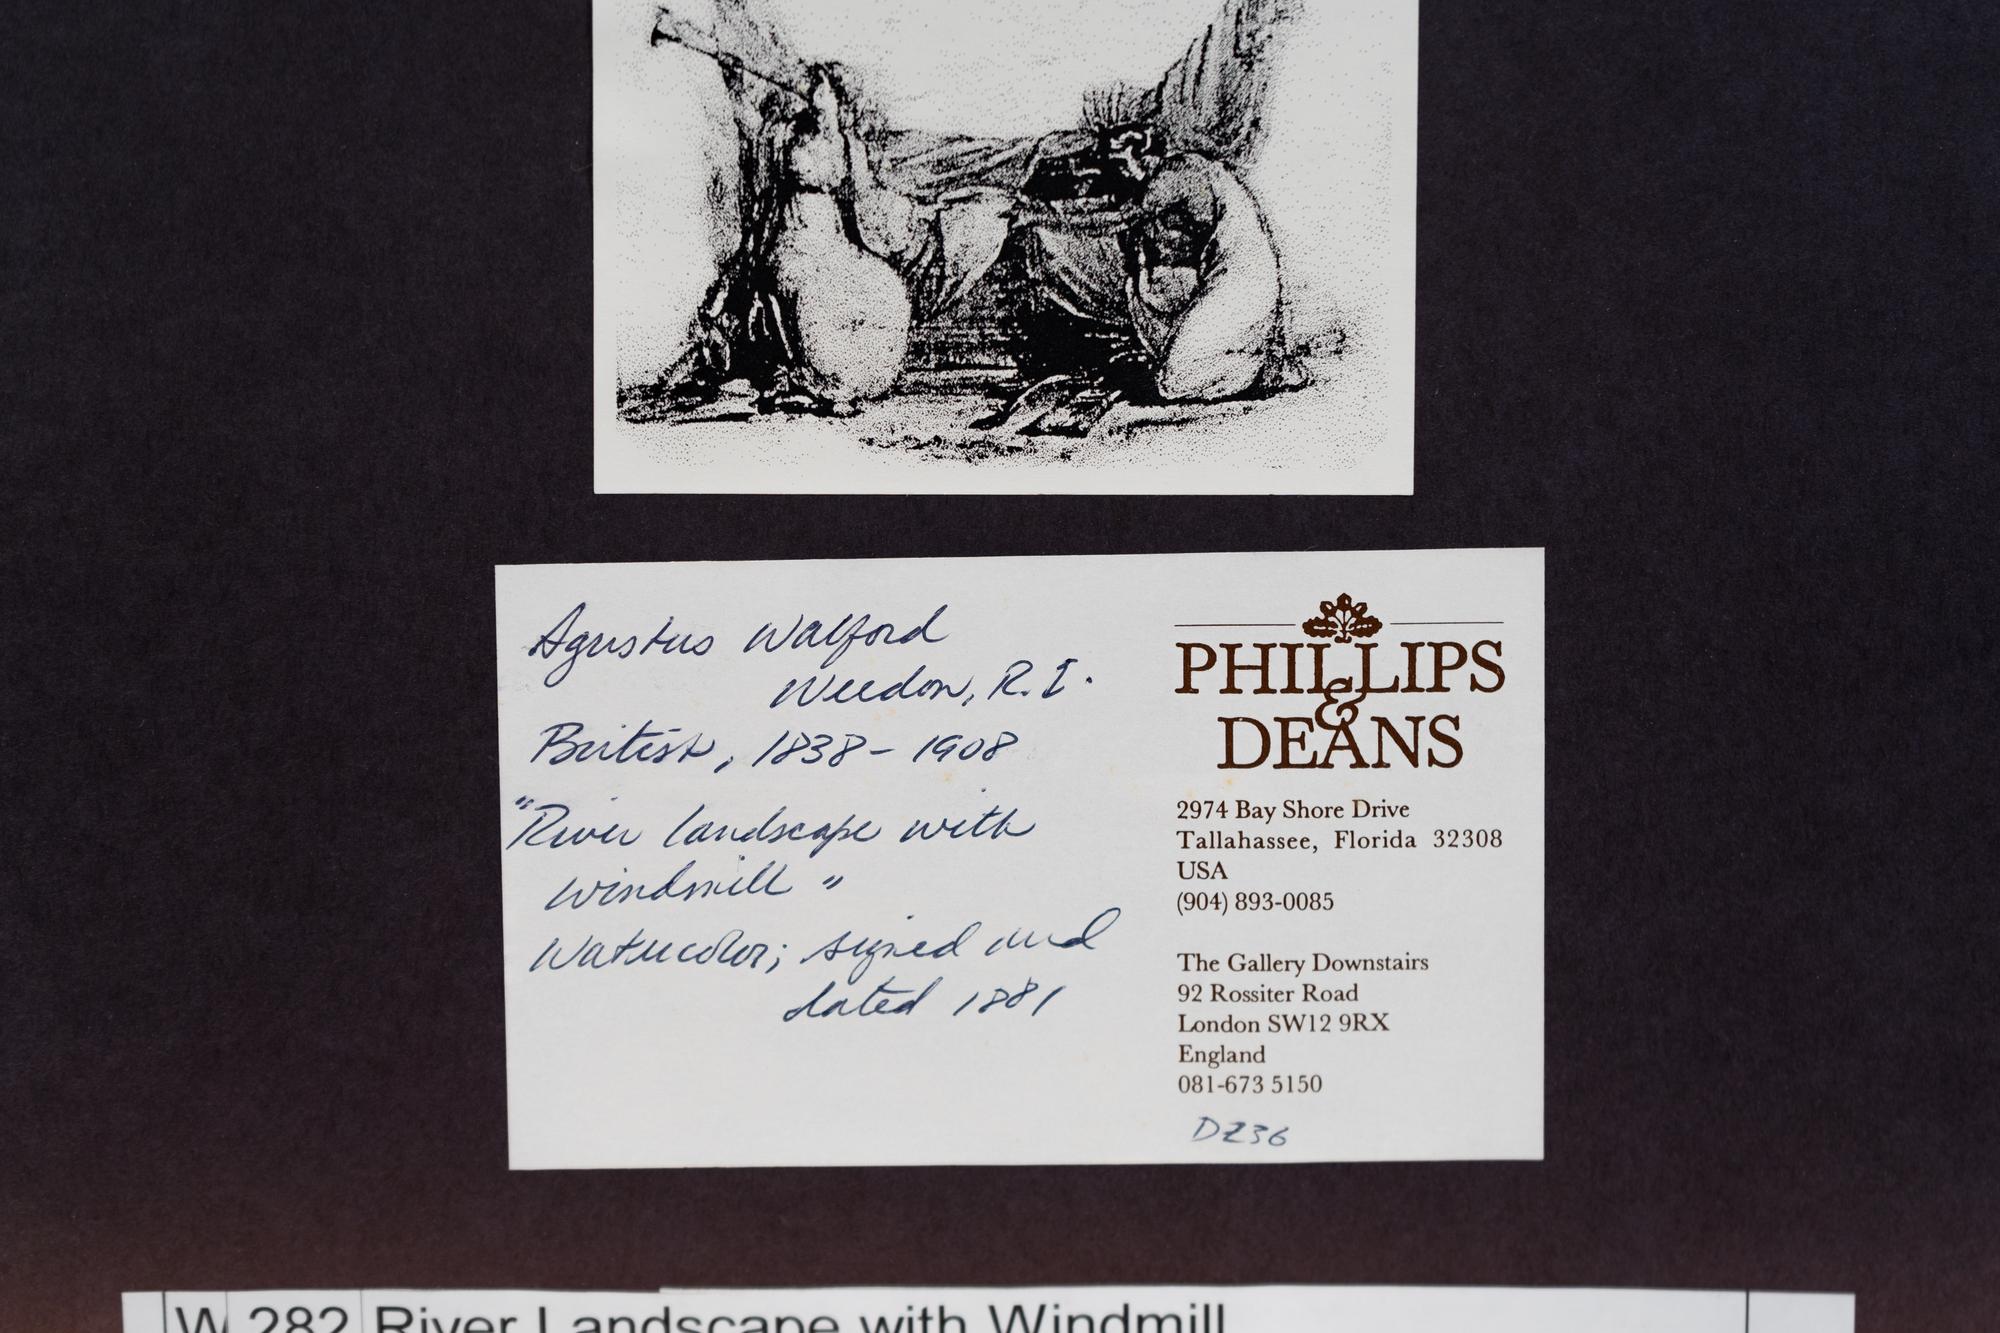 Agustus Walford
Weedon, R.I.
British, 1838-1908
"River landscape with
windmill"
Watercolor; signed and
dated 1881
PHILLIPS
&
DEANS
2974 Bay Shore Drive
Tallahassee, Florida 32308
USA
(904) 893-0085
The Gallery Downstairs
92 Rossiter Road
London SW12 9RX
England
081-673 5150
DZ36
W 282 River Landscape with Windmill